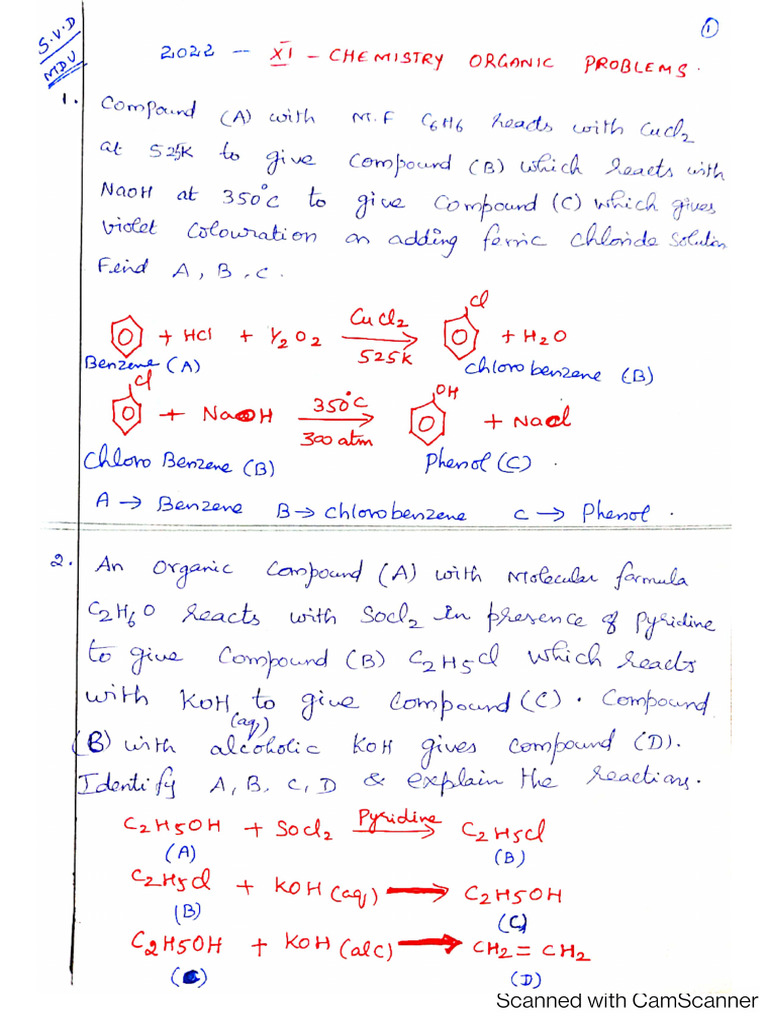 ①
S.V.D
MDU
2022 — XI - CHEMISTRY ORGANIC PROBLEMS.
1. Compound (A) with M.F C6H6 reacts with CuCl2
at 525K to give Compound (B) which reacts with
NaOH at 350°C to give Compound (C) which gives
violet Colouration on adding ferric chloride Solution
Find A, B, C.
Cl
+ HCl + 1/2 O2 CuCl2 525K + H2O
Benzene (A) Chloro benzene (B)
Cl OH
+ NaOH 350°C 300 atm + NaCl
Chloro Benzene (B) Phenol (C).
A → Benzene B → Chlorobenzene C → Phenol.
2. An Organic Compound (A) with Molecular formula
C2H6O reacts with SOCl2 in presence of Pyridine
to give Compound (B) C2H5Cl which reacts
with KOH to give Compound (C). Compound
(aq)
(B) with alcoholic KOH gives compound (D).
Identify A, B, C, D & explain the reactions.
C2H5OH + SOCl2 Pyridine → C2H5Cl
(A) (B)
C2H5Cl + KOH (aq) → C2H5OH
(B) (C)
C2H5OH + KOH (alc) → CH2 = CH2
(C) (D)
Scanned with CamScanner